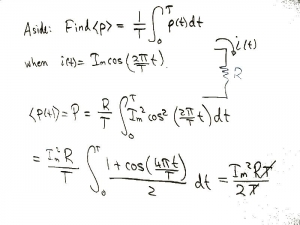 Aside: Find <p> = 1/T ∫₀ᵀ p(t)dt
i(t)
when i(t) = Im cos (2π/T t).
R
<p(t)> = P = R/T ∫₀ᵀ Im² cos² (2π/T t) dt
= Im² R/T ∫₀ᵀ (1 + cos(4πt/T))/2 dt = Im² R T/2 T